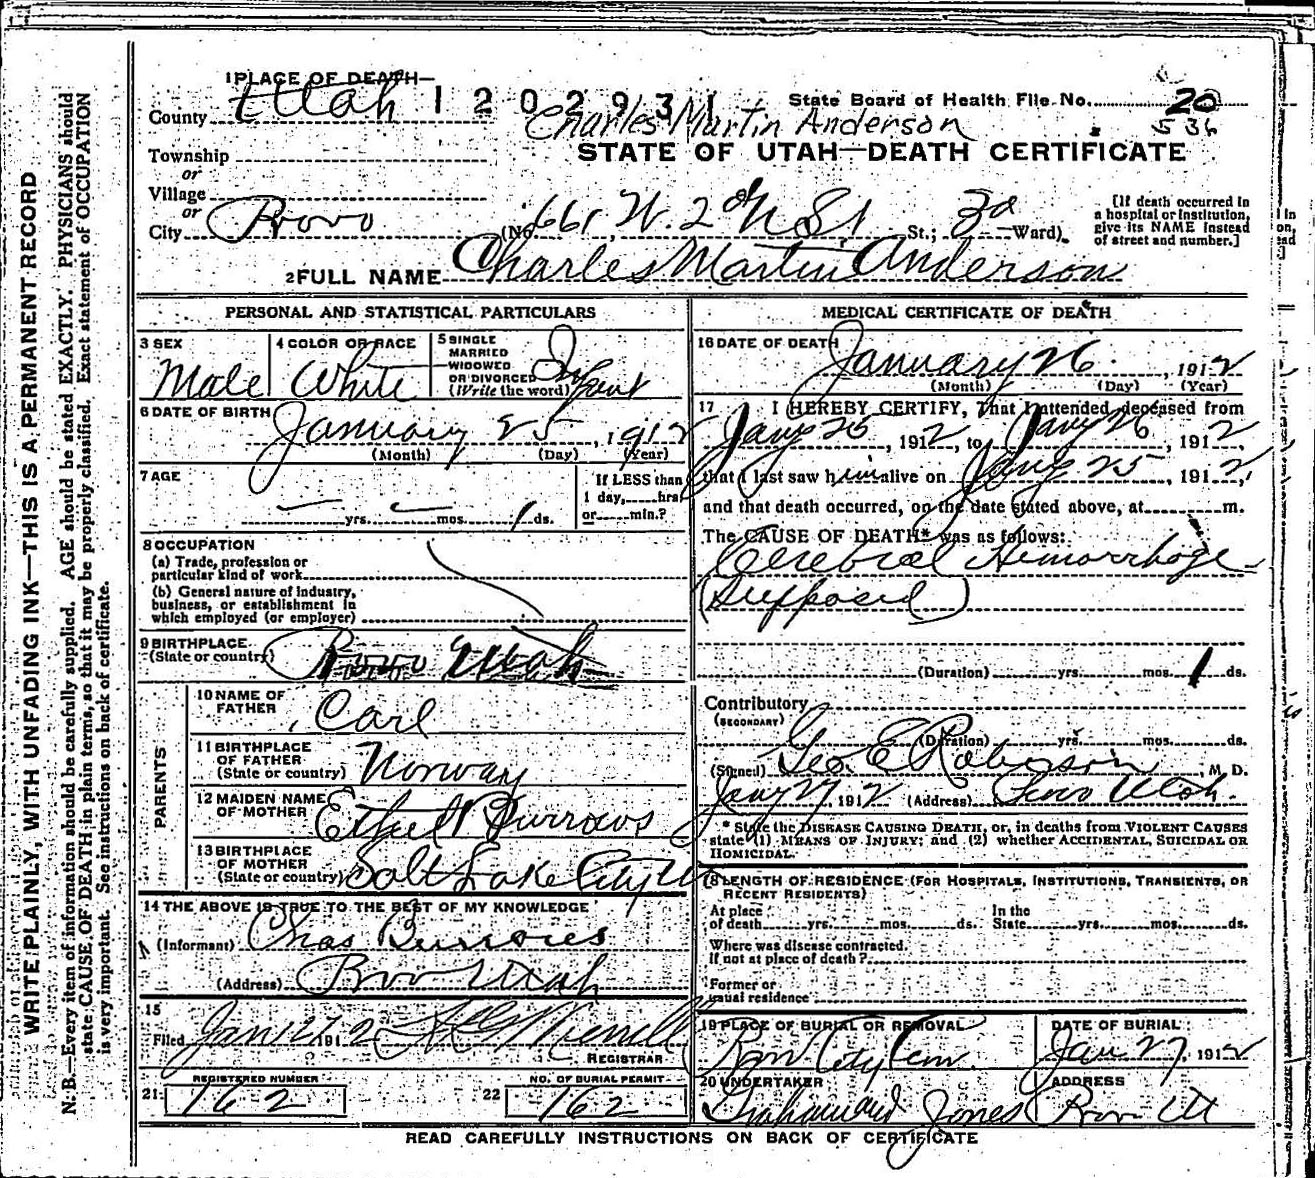 1 PLACE OF DEATH—
County Utah 1 2 0 2 9 3 1 State Board of Health File No. 20
Charles Martin Anderson 536
Township
or
STATE OF UTAH—DEATH CERTIFICATE
Village
or
City Provo (No. 661 W. 2nd N St St.; 3d Ward)
[If death occurred in
a hospital or institution,
give its NAME instead
of street and number.]
2 FULL NAME Charles Martin Anderson
PERSONAL AND STATISTICAL PARTICULARS
3 SEX
Male
4 COLOR OR RACE
White
5 SINGLE
MARRIED
WIDOWED
OR DIVORCED
(Write the word) Infant
6 DATE OF BIRTH
January 25, 1912
(Month) (Day) (Year)
7 AGE
— yrs. — mos. 1 ds.
If LESS than
1 day, hrs
or min.?
8 OCCUPATION
(a) Trade, profession or
particular kind of work
(b) General nature of industry,
business, or establishment in
which employed (or employer)
9 BIRTHPLACE
(State or country) Provo Utah
PARENTS
10 NAME OF
FATHER Carl
11 BIRTHPLACE
OF FATHER
(State or country) Norway
12 MAIDEN NAME
OF MOTHER Ethel Burrows
13 BIRTHPLACE
OF MOTHER
(State or country) Salt Lake City Ut
14 THE ABOVE IS TRUE TO THE BEST OF MY KNOWLEDGE
(Informant) Chas Burrows
(Address) Provo Utah
15
Filed Jan 27 1912
REGISTRAR
REGISTERED NUMBER
21 162
NO. OF BURIAL PERMIT
22 162
MEDICAL CERTIFICATE OF DEATH
16 DATE OF DEATH
January 26, 1912
(Month) (Day) (Year)
17 I HEREBY CERTIFY, That I attended deceased from
Jany 25, 1912, to Jany 26, 1912,
that I last saw him alive on Jany 25, 1912,
and that death occurred, on the date stated above, at m.
The CAUSE OF DEATH* was as follows:
Cerebral Hemorrhage
(Supposed)
(Duration) yrs. mos. 1 ds.
Contributory
(SECONDARY)
(Duration) yrs. mos. ds.
(Signed) Geo. E Robison, M. D.
Jany 27, 1912 (Address) Provo Utah.
* State the DISEASE CAUSING DEATH, or, in deaths from VIOLENT CAUSES
state (1) MEANS OF INJURY; and (2) whether ACCIDENTAL, SUICIDAL OR
HOMICIDAL.
18 LENGTH OF RESIDENCE (FOR HOSPITALS, INSTITUTIONS, TRANSIENTS, OR
RECENT RESIDENTS)
At place
of death yrs. mos. ds.
In the
State yrs. mos. ds.
Where was disease contracted,
if not at place of death?
Former or
usual residence
19 PLACE OF BURIAL OR REMOVAL
Prov City Cem.
DATE OF BURIAL
Jan 27, 1912
20 UNDERTAKER
Graham and Jones
ADDRESS
Prov Ut
READ CAREFULLY INSTRUCTIONS ON BACK OF CERTIFICATE
WRITE PLAINLY, WITH UNFADING INK—THIS IS A PERMANENT RECORD
N. B.—Every item of information should be carefully supplied. AGE should be stated EXACTLY. PHYSICIANS should
state CAUSE OF DEATH in plain terms, so that it may be properly classified. Exact statement of OCCUPATION
is very important. See instructions on back of certificate.